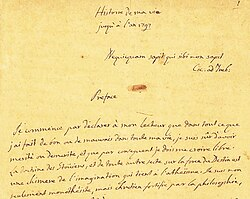 Histoire de ma vie
jusqu'à l'an 1797
Nequicquam sapit qui sibi non sapit
Cic. ad Treb.
Preface
Je commence par declarer à mon lecteur que dans tout ce que
j'ai fait de bon ou de mauvais dans toute ma vie, je suis sûr d'avoir
merité ou demerité, et que par consequent je dois me croire libre.
La doctrine des Stoïciens, et de toute autre secte sur la force du Destin est
une chimere de l'imagination qui tient à l'atheisme. Je suis non
seulement monotheiste, mais chretien fortifié par la philosophie,